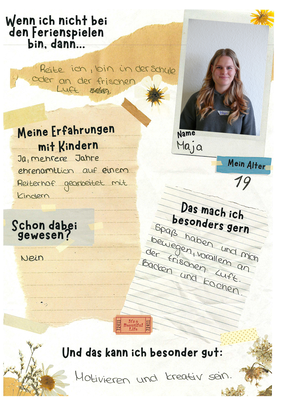 Wenn ich nicht bei
den Ferienspielen
bin, dann...
Reite ich, bin in der Schule
oder an der frischen
Luft
Name
Maja
Mein Alter
19
Meine Erfahrungen
mit Kindern
Ja, mehrere Jahre
ehrenamtlich auf einem
Reiterhof gearbeitet mit
Kindern
Schon dabei
gewesen?
Nein
Das mach ich
besonders gern
Spaß haben und mich
bewegen, vorallem an
der frischen Luft.
Backen und kochen
It's a
Beautiful
Life
Und das kann ich besonder gut:
Motivieren und kreativ sein.